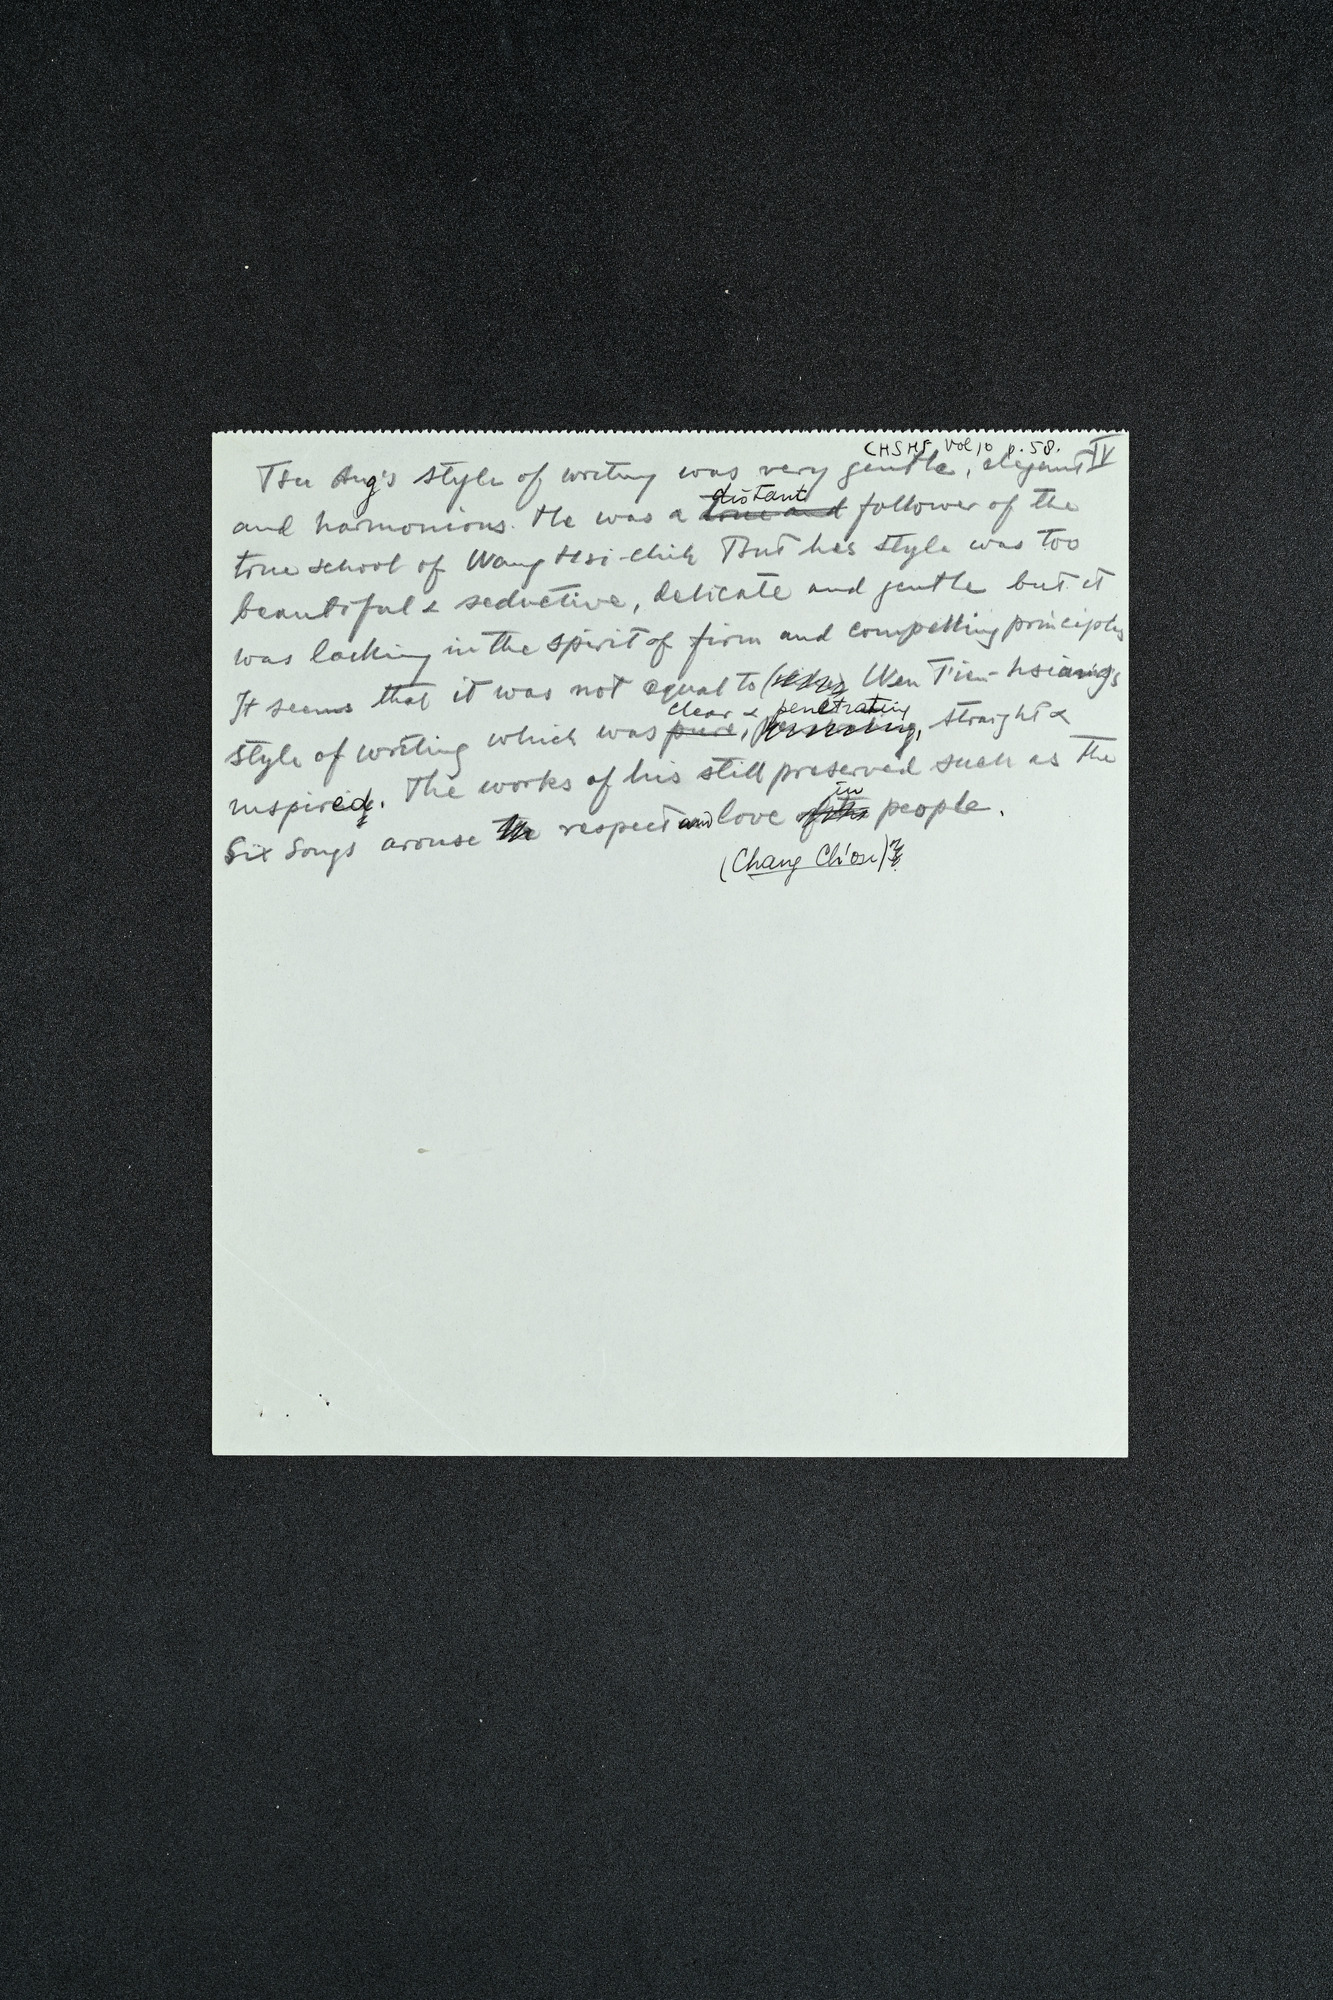 CHSHF Vol 10 p. 58. IV
Tsu Ang's style of writing was very gentle, elegant
and harmonious. He was a distant follower of the
true school of Wang Hsi-chih But his style was too
beautiful & seductive, delicate and gentle but it
was lacking in the spirit of firm and compelling principles
It seems that it was not equal to Wen Tien-hsiang's
clear & penetrating
style of writing which was pure, straight &
inspired. The works of his still preserved such as the
in
Six Songs arouse the respect and love of the people.
(Chang Ch'ou)